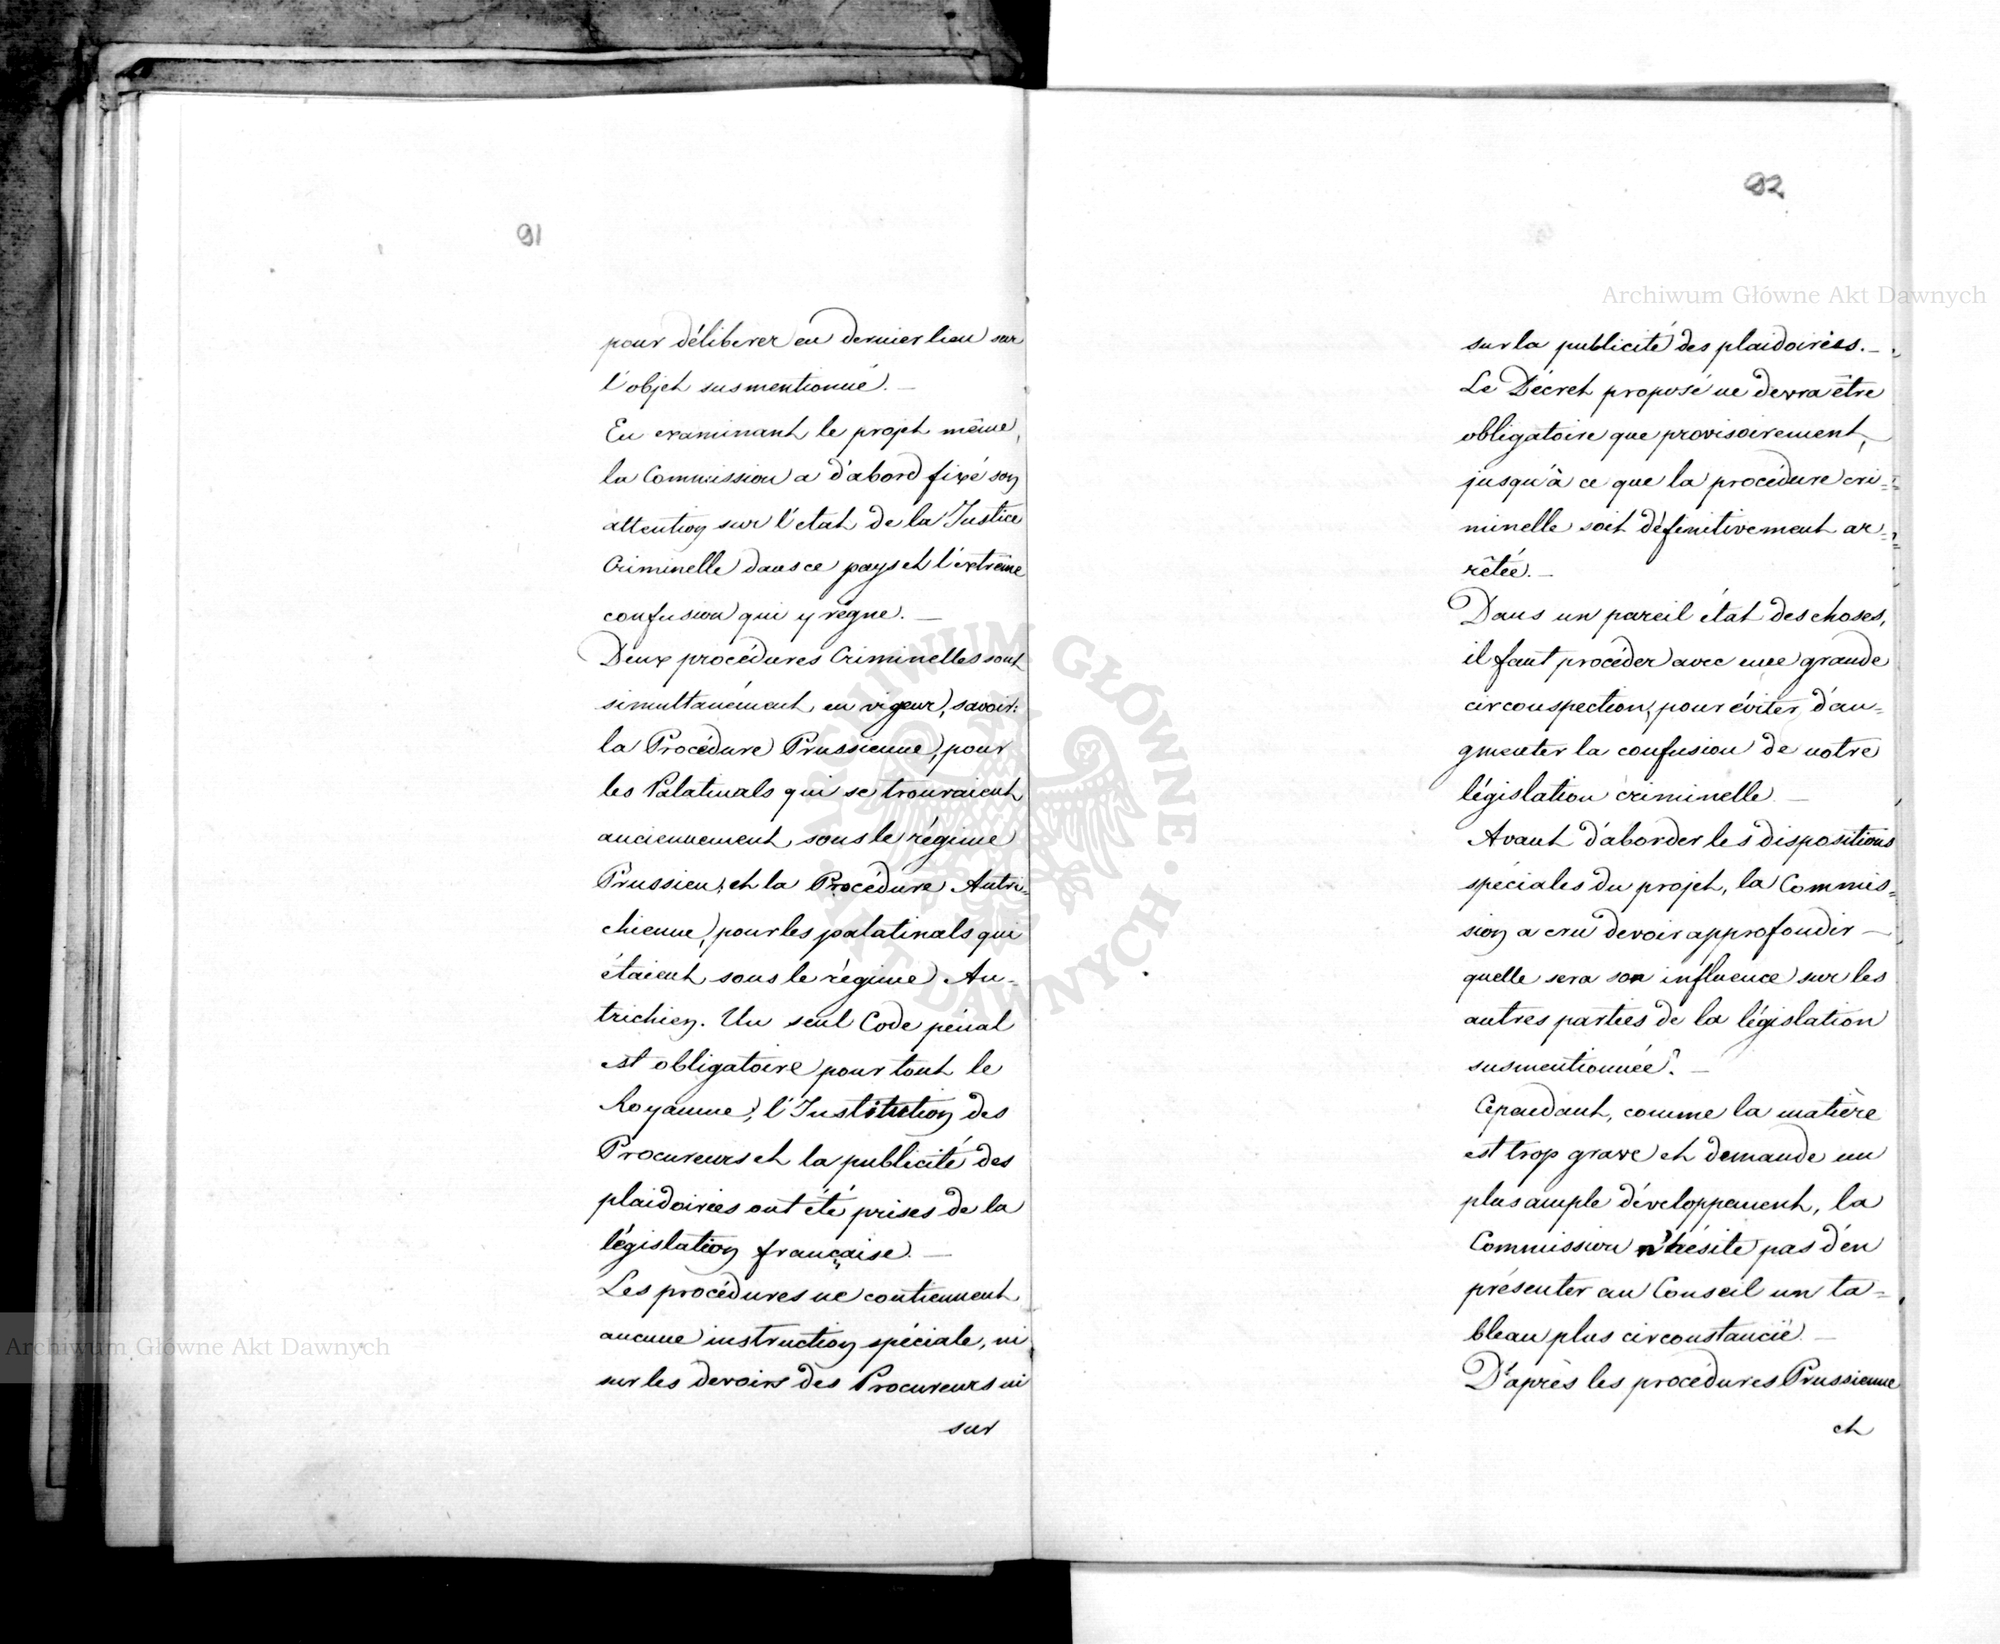 91
pour déliberer en dernier lieu sur
l'objet susmentionné. —
En examinant le projet même,
la Commission a d'abord fixé son
attention sur l'etat de la Justice
Criminelle dans ce pays et l'extrême
confusion qui y règne. —
Deux procédures Criminelles sont
simultanément en vigeur, savoir:
la Procédure Prussienne, pour
les Palatinats qui se trouvaient
anciennement sous le régime
Prussien; et la Procédure Autri=
chienne, pour les palatinats qui
étaient sous le régime Au=
trichien. Un seul Code pénal
est obligatoire pour tout le
Royaume; l'Institution des
Procureurs et la publicité des
plaidoiries ont été prises de la
législation française. —
Les procédures ne contiennent
aucune instruction spéciale, ni
sur les devoirs des Procureurs ni
sur
92
sur la publicité des plaidoiries. —
Le Décret proposé ne devra être
obligatoire que provisoirement,
jusqu'à ce que la procédure cri=
minelle soit définitivement ar=
rêtée. —
Dans un pareil état des choses,
il faut procéder avec une grande
circonspection, pour éviter d'au=
gmenter la confusion de notre
législation criminelle —
Avant d'aborder les dispositions
spéciales du projet, la Commis=
sion a cru devoir approfondir —
quelle sera son influence sur les
autres parties de la législation
susmentionnée? —
Cependant, comme la matière
est trop grave et demande un
plus ample développement, la
Commission n'hésite pas d'en
présenter au Conseil un ta=
bleau plus circonstancié —
D'après les procédures Prussienne
et
Archiwum Główne Akt Dawnych
Archiwum Główne Akt Dawnych
ARCHIWUM GŁÓWNE AKT DAWNYCH